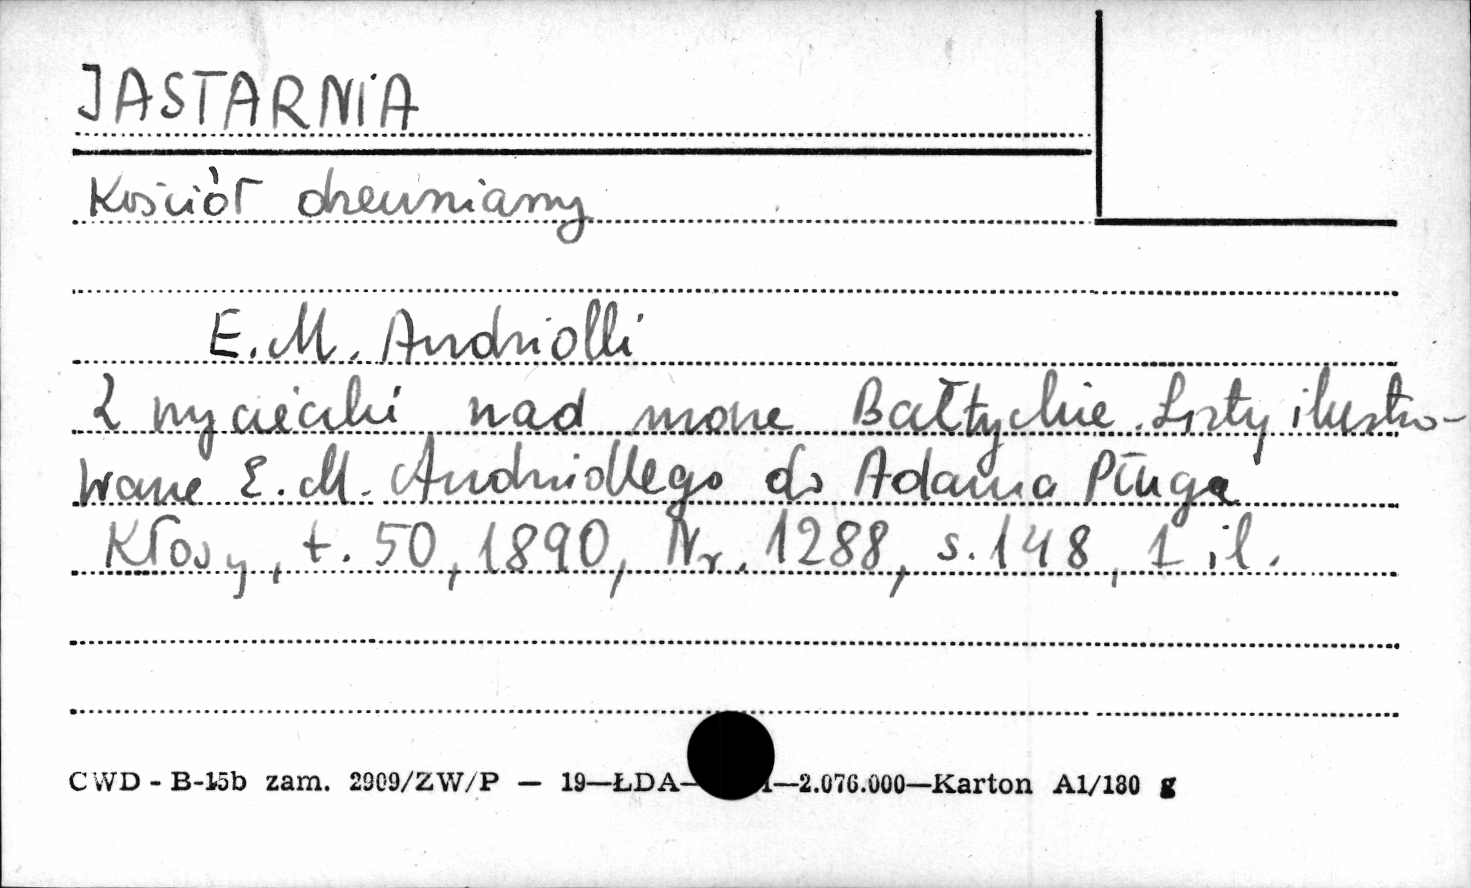 JASTARNIA
Kościół drewniany
E. M. Andriolli
Z wycieczki nad morze Bałtyckie. Listy ilustro-
wane E. M. Andriollego do Adama Pługa
Kłosy, t. 50, 1890, Nr. 1288, s. 148, 1 il.
CWD - B-15b zam. 2909/ZW/P — 19—ŁDA- —2.076.000—Karton A1/180 g